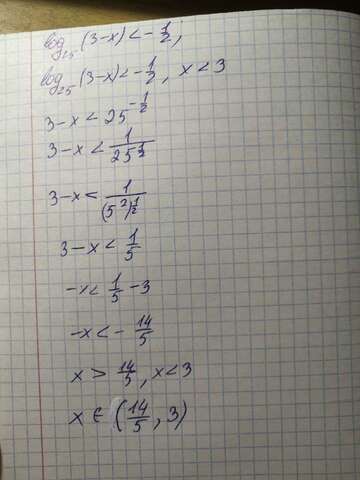 log₂₅(3-x)<-1/2;
log₂₅(3-x)<-1/2, x<3
3-x<25^(-1/2)
3-x<1/25^(1/2)
3-x<1/(5²)^(1/2)
3-x<1/5
-x<1/5-3
-x<-14/5
x>14/5, x<3
x∈(14/5, 3)